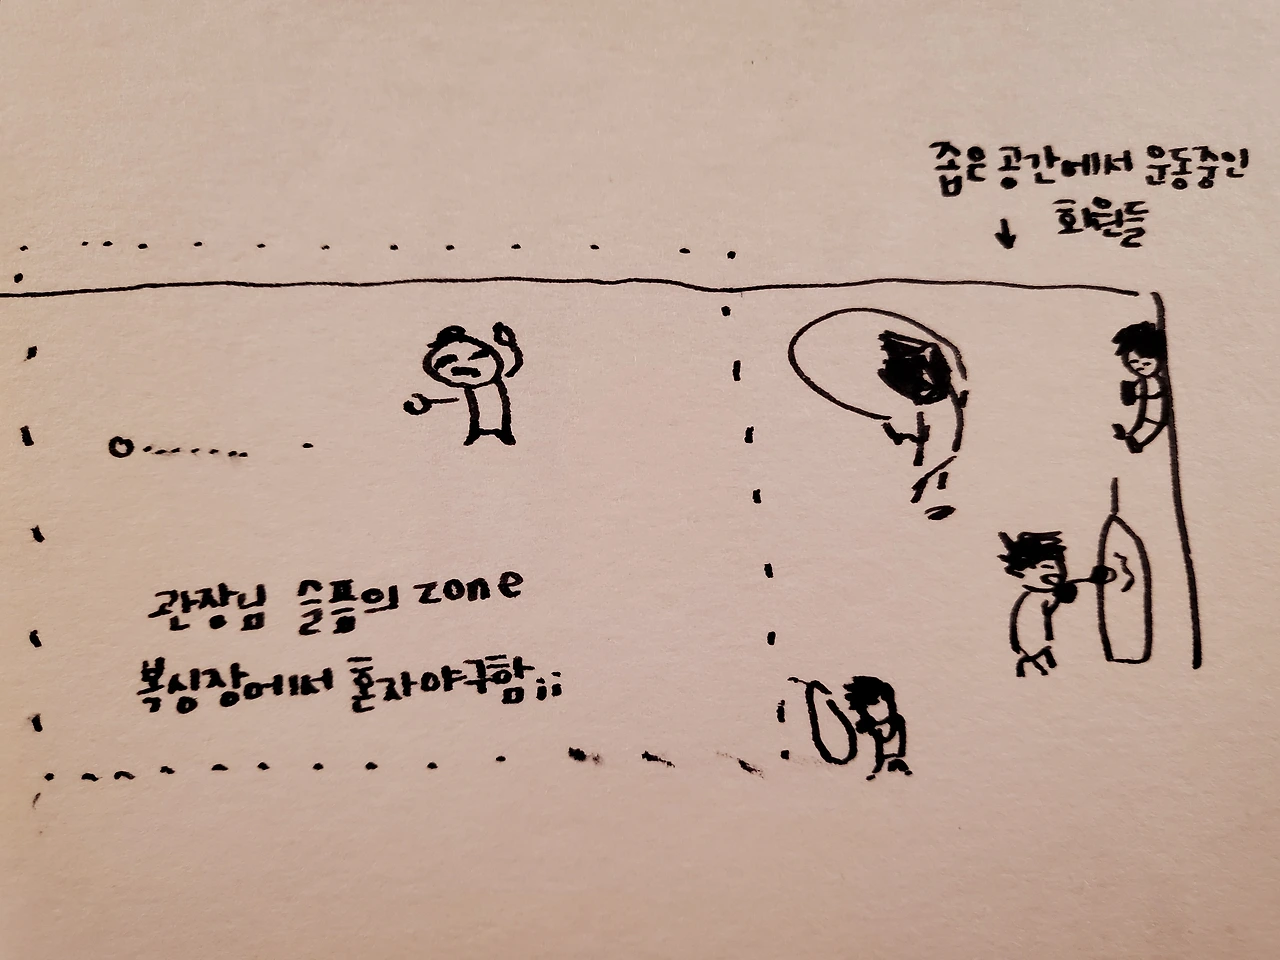 좁은 공간에서 운동중인
회원들
관장님 슬픔의 zone
복싱장에서 혼자야구함;;